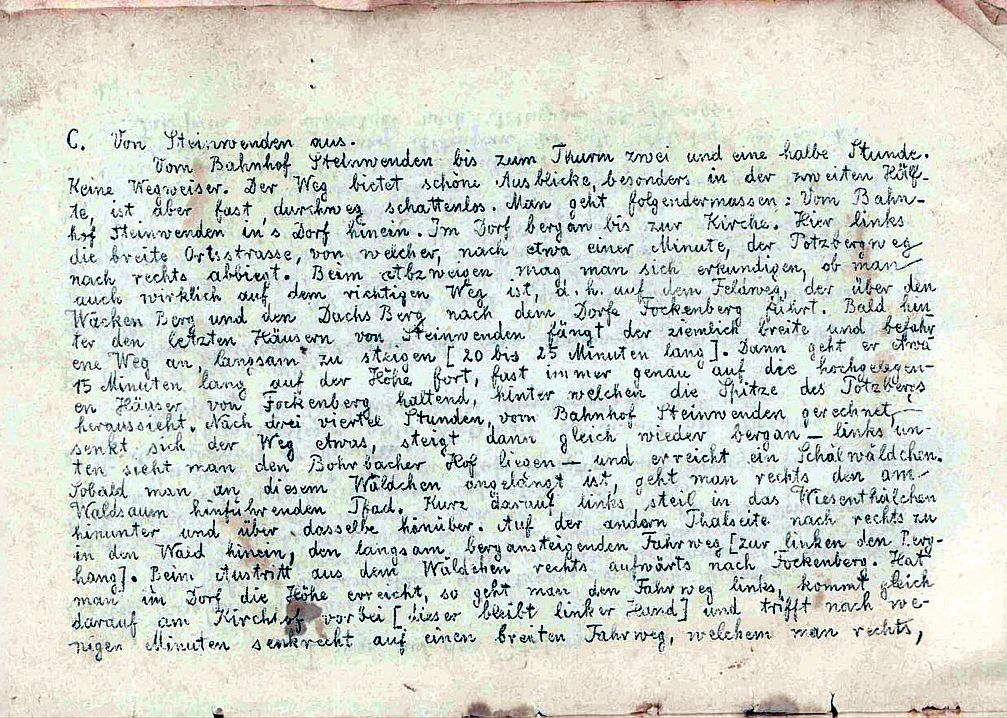 C. Von Steinwenden aus.
Vom Bahnhof Steinwenden bis zum Thurm zwei und eine halbe Stunde.
Keine Wegweiser. Der Weg bietet schöne Ausblicke, besonders in der zweiten Hälf-
te, ist aber fast durchweg schattenlos. Man geht folgendermassen: Vom Bahn-
hof Steinwenden in's Dorf hinein. Im Dorf bergan bis zur Kirche. Hier links
die breite Ortsstrasse, von welcher, nach etwa einer Minute, der Potzbergweg
nach rechts abbiegt. Beim Abzweigen mag man sich erkundigen, ob man
auch wirklich auf dem richtigen Weg ist, d.h. auf dem Feldweg, der über den
Wacken Berg und den Dachs Berg nach dem Dorfe Fockenberg führt. Bald hin
ter den letzten Häusern von Steinwenden fängt der ziemlich breite und befahr
ene Weg an, langsam zu steigen [20 bis 25 Minuten lang]. Dann geht er etwa
15 Minuten lang auf der Höhe fort, fast immer genau auf die hochgelegen-
en Häuser von Fockenberg haltend, hinter welchen die Spitze des Potzbergs
heraussieht. Nach drei viertel Stunden, vom Bahnhof Steinwenden gerechnet,
senkt sich der Weg etwas, steigt dann gleich wieder bergan — links un-
ten sieht man den Bohrbacher Hof liegen — und erreicht ein Schälwäldchen.
Sobald man an diesem Wäldchen angelangt ist, geht man rechts den am
Waldsaum hinführenden Pfad. Kurz darauf links steil in das Wiesenthälchen
hinunter und über dasselbe hinüber. Auf der andern Thalseite nach rechts zu
in den Wald hinein, den langsam bergansteigenden Fahrweg [zur linken den Berg-
hang]. Beim Austritt aus dem Wäldchen rechts aufwärts nach Fockenberg. Hat
man im Dorf die Höhe erreicht, so geht man den Fahrweg links, kommt gleich
darauf am Kirchhof vorbei [dieser bleibt linker Hand] und trifft nach we-
nigen Minuten senkrecht auf einen breiten Fahrweg, welchem man rechts,